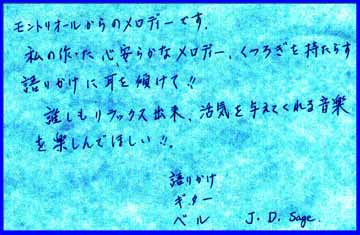 モントリオールからのメロディーです。
私の作った、心安らかなメロディー、くつろぎを持たらす
語りかけに、耳を傾けて!!
誰しもリラックス出来、活気を与えてくれる音楽
を楽しんでほしい!!。
語りかけ
ギター
ベル J. D. Sage.